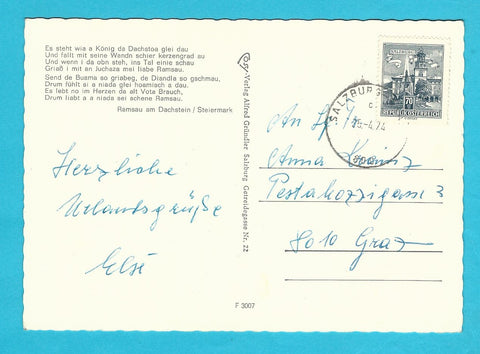 Es steht wia a König da Dachstoa glei dau
Und fallt mit seine Wendn schier kerzengrad au
Und wenn i da obn steh, ins Tal einie schau
Grieß i mit an Juchaza mei liabe Ramsau.
Send de Buama so griabeg, de Diandla so gschmau,
Drum fühlt si a niada glei hoamisch a dau.
Es lebt no im Herzen de alt Vota Brauch,
Drum liabt a a niada sei schene Ramsau.
Ramsau am Dachstein / Steiermark
Herzliche
Urlaubsgrüße
Else
Verlag Alfred Gründler Salzburg Getreidegasse Nr. 22
F 3007
SALZBURG
70
REPUBLIK ÖSTERREICH
SALZBURG
-4.74
An
Anna
Pestalozzigasse 3
8010 Graz